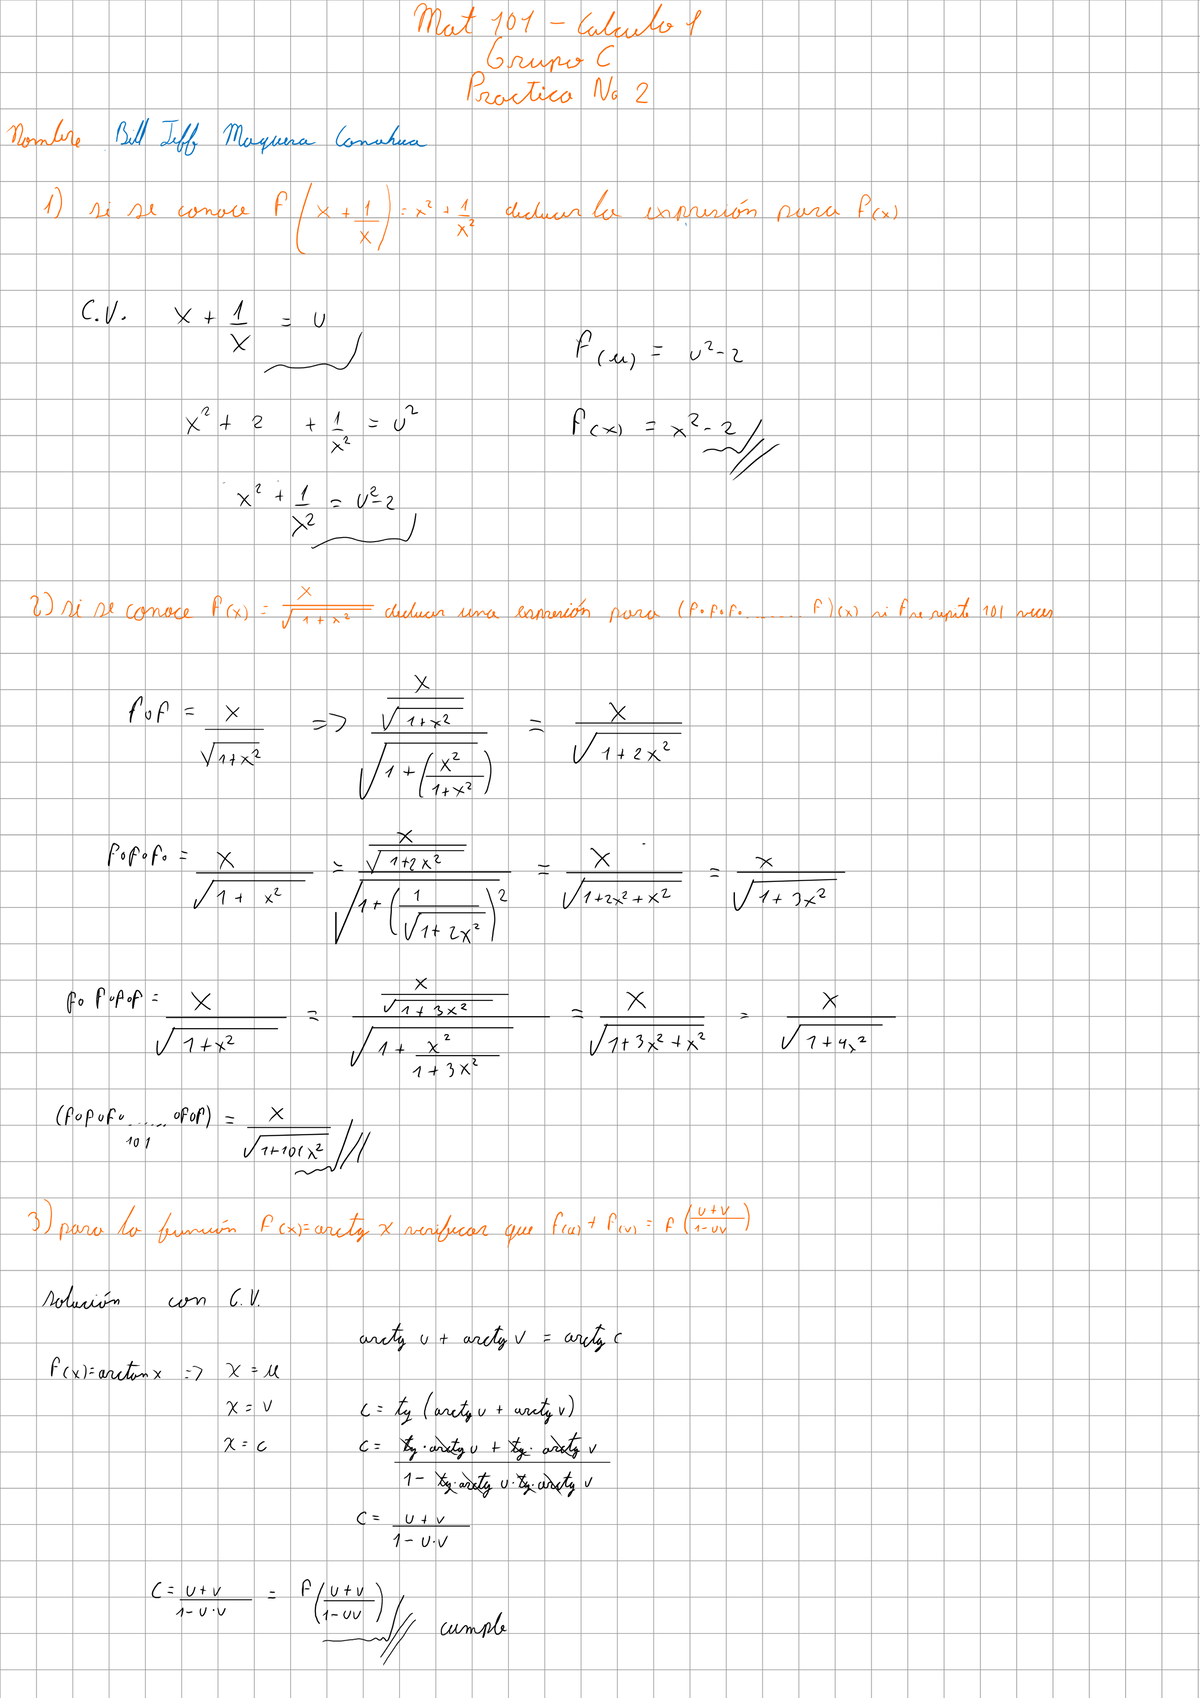 Mat 101 - Calculo 1
Grupo C
Practica No 2
Nombre Bill Jeff Maquera Canahua
1) si se conoce f(x + 1/x) = x² + 1/x² deducir la expresión para f(x)
C.V. x + 1/x = u
f(u) = u² - 2
x² + 2 + 1/x² = u²
f(x) = x² - 2
x² + 1/x² = u² - 2
2) si se conoce f(x) = x/√(1+x²) deducir una expresión para (f∘f∘f∘........f)(x) si f se repite 101 veces
f∘f = x/√(1+x²) => (x/√(1+x²))/√(1+(x²/(1+x²))) = x/√(1+2x²)
f∘f∘f∘ = x/√(1+x²) = (x/√(1+2x²))/√(1+(1/√(1+2x²))²) = x/√(1+2x²+x²) = x/√(1+3x²)
f∘f∘f∘f = x/√(1+x²) = (x/√(1+3x²))/√(1+x²/(1+3x²)) = x/√(1+3x²+x²) = x/√(1+4x²)
(f∘f∘f∘......∘f∘f) = x/√(1+101x²)
101
3) para la función f(x)=arctg x verificar que f(u) + f(v) = f((u+v)/(1-uv))
solución con C.V.
arctg u + arctg v = arctg c
f(x)=arctan x => x = u
x = v
c = tg (arctg u + arctg v)
x = c
c = (tg·arctg u + tg·arctg v)/(1 - tg·arctg u·tg·arctg v)
c = (u+v)/(1-u·v)
c = (u+v)/(1-u·v) = f((u+v)/(1-uv)) cumple